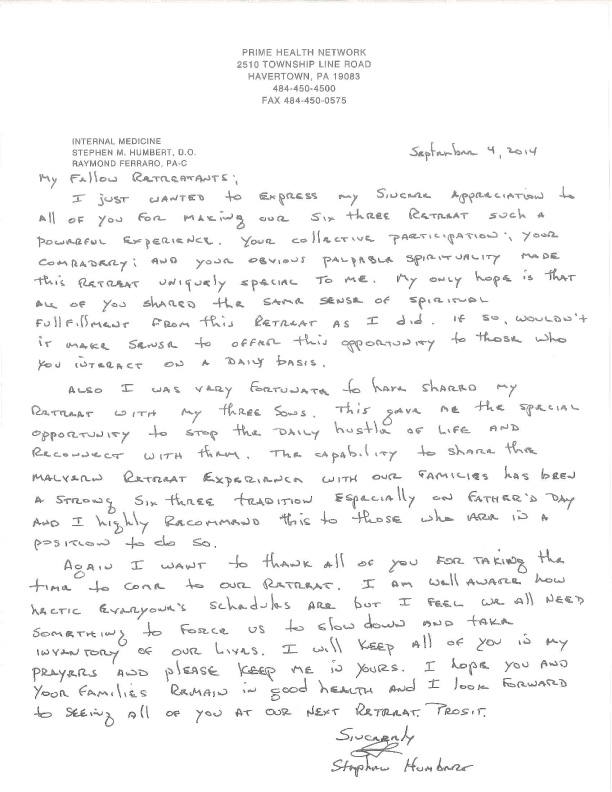 PRIME HEALTH NETWORK
2510 TOWNSHIP LINE ROAD
HAVERTOWN, PA 19083
484-450-4500
FAX 484-450-0575
INTERNAL MEDICINE
STEPHEN M. HUMBERT, D.O.
RAYMOND FERRARO, PA-C
September 4, 2014
My Fellow Retreatants;
I just wanted to express my sincere appreciation to
all of you for making our Six three Retreat such a
powerful experience. Your collective participation; your
comradery; and your obvious palpable spirituality made
this retreat uniquely special to me. My only hope is that
all of you shared the same sense of spiritual
fullfillment from this retreat as I did. If so, wouldn't
it make sense to offer this opportunity to those who
you interact on a daily basis.
Also I was very fortunate to have shared my
retreat with my three sons. This gave me the special
opportunity to stop the daily hustle of life and
reconnect with them. The capability to share the
Malvern Retreat experience with our families has been
a strong Six three tradition especially on Father's Day
and I highly recommend this to those who are in a
position to do so.
Again I want to thank all of you for taking the
time to come to our retreat. I am well aware how
hectic everyone's schedules are but I feel we all need
something to force us to slow down and take
inventory of our lives. I will keep all of you in my
prayers and please keep me in yours. I hope you and
your families remain in good health and I look forward
to seeing all of you at our next retreat. Prosit.
Sincerely
Stephen Humbert